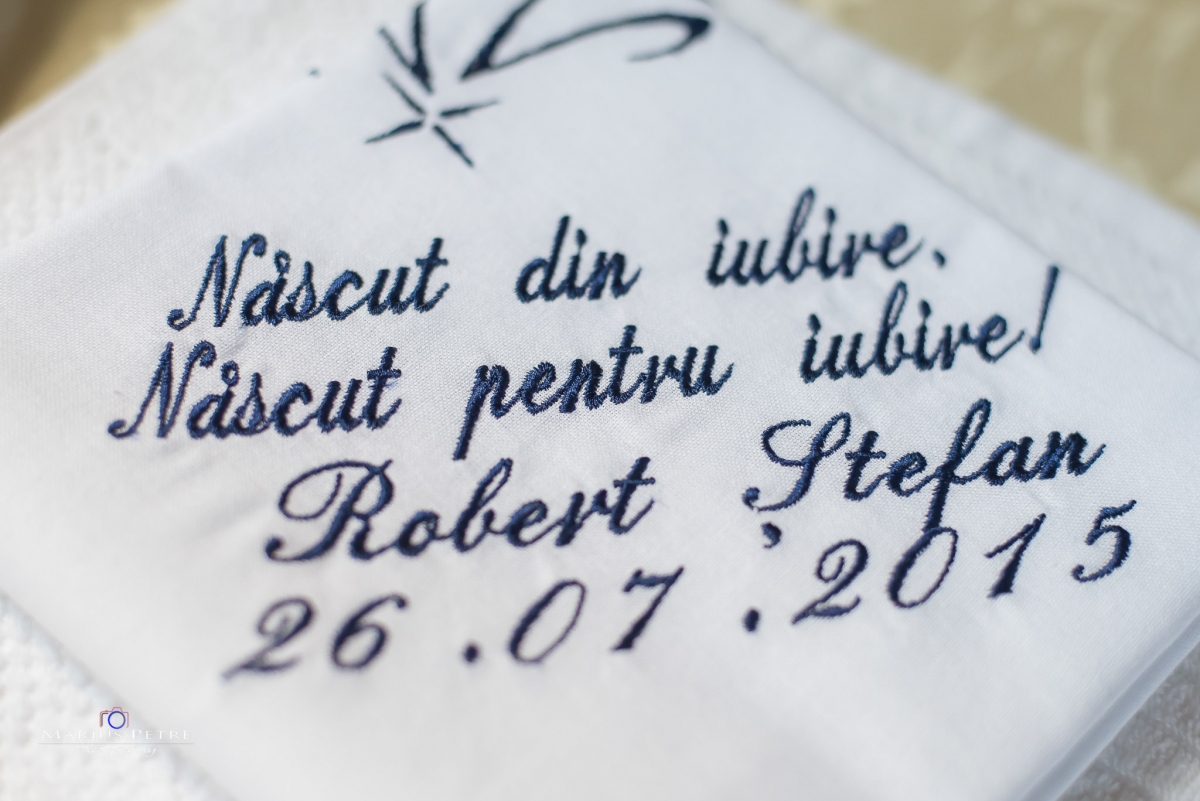 Născut din iubire.
Născut pentru iubire!
Robert Ștefan
26.07.2015
MARIUS PETRE